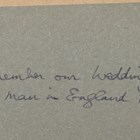 member our Weddin
Man is England